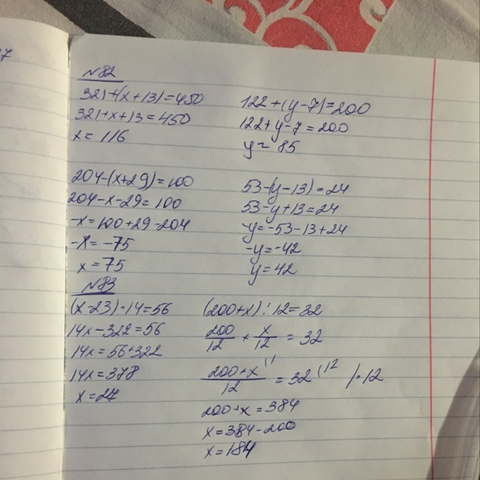 №82
321+(x+13)=450
321+x+13=450
x=116
122+(y-7)=200
122+y-7=200
y=85
204-(x+29)=100
204-x-29=100
-x=100+29-204
-x=-75
x=75
53-(y-13)=24
53-y+13=24
-y=-53-13+24
-y=-42
y=42
№83
(x-23)·14=56
14x-322=56
14x=56+322
14x=378
x=27
(200+x):12=32
200/12+x/12=32
200+x/12=32 |·12
200+x=384
x=384-200
x=184